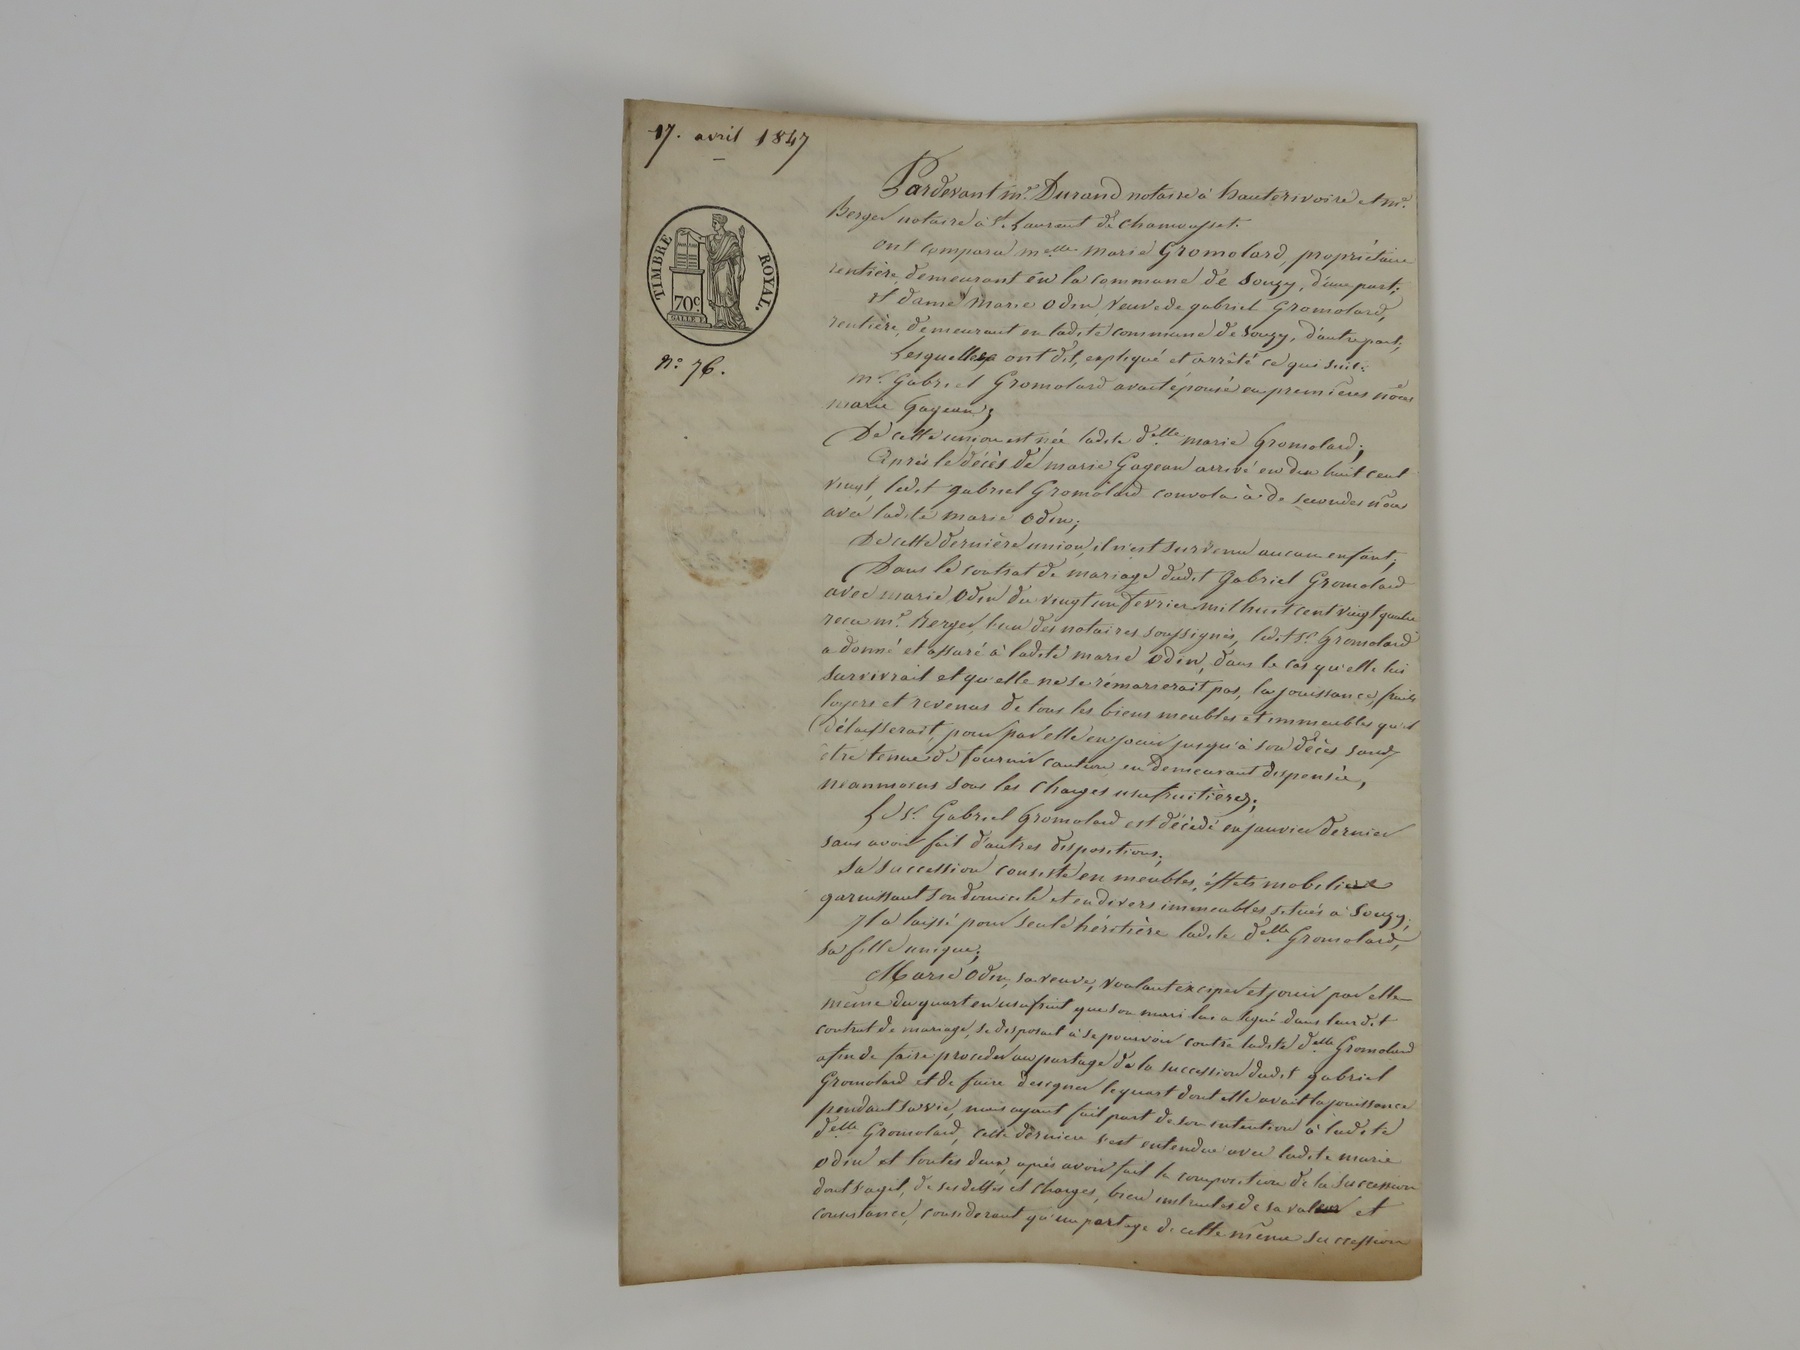 17. avril 1847
TIMBRE ROYAL.
70c.
SALLE F.
No. 76.
Pardevant me. Durand notaire à hauterivoire et me.
Berger notaire à St. Laurent de Chamousset.
Ont comparu melle. marie Gromolard, propriétaire
rentière, demeurant en la commune de Souzy, d'une part;
et dame marie Odin, veuve de gabriel Gromolard,
rentière, demeurant en ladite commune de Souzy, d'autre part;
Lesquelles ont dit, expliqué et arrêté ce qui suit:
mr. Gabriel Gromolard avait épousé en premières nôces
marie Gageau;
De cette union est née ladite delle. marie Gromolard;
Après le décès de marie Gageau arrivé en dix huit cent
vingt, ledit gabriel Gromolard convola à de secondes nôces
avec ladite marie Odin;
De cette dernière union, il n'est survenu aucun enfant;
Dans le contrat de mariage dudit Gabriel Gromolard
avec marie Odin du vingt un février mil huit cent vingt quatre
reçu me. Berger, l'un des notaires soussignés, ledit sr. Gromolard
a donné et assuré à ladite marie Odin, dans le cas qu'elle lui
survivrait et qu'elle ne se rémarierait pas, la jouissance, fruits
loyers et revenus de tous les biens meubles et immeubles qu'il
délaisserait, pour par elle en jouir jusqu'à son décès sans
être tenue de fournir caution en demeurant dispensée,
neanmoins sous les charges usufruitières;
Le sr. Gabriel Gromolard est décédé en janvier dernier
sans avoir fait d'autres dispositions;
Sa succession consiste en meubles, éffets mobiliers
garnissant son domicile et en divers immeubles situés à Souzy;
Il a laissé pour seule héritière ladite delle. Gromolard,
sa fille unique;
Marie Odin, sa veuve, voulant exciper et jouir par elle
même du quart en usufruit que son mari lui a légué dans leur dit
contrat de mariage, se disposait à se pourvoir contre ladite delle Gromolard
afin de faire proceder au partage de la succession dudit gabriel
Gromolard et de faire designer le quart dont elle avait la jouissance
pendant sa vie, mais ayant fait part de son intention à ladite
delle. Gromolard, cette dernière s'est entendue avec ladite marie
Odin et toutes deux, après avoir fait la composition de la succession
dont s'agit, de ses dettes et charges, bien instruites de sa valeur et
consistance, considerant qu'un partage de cette même succession